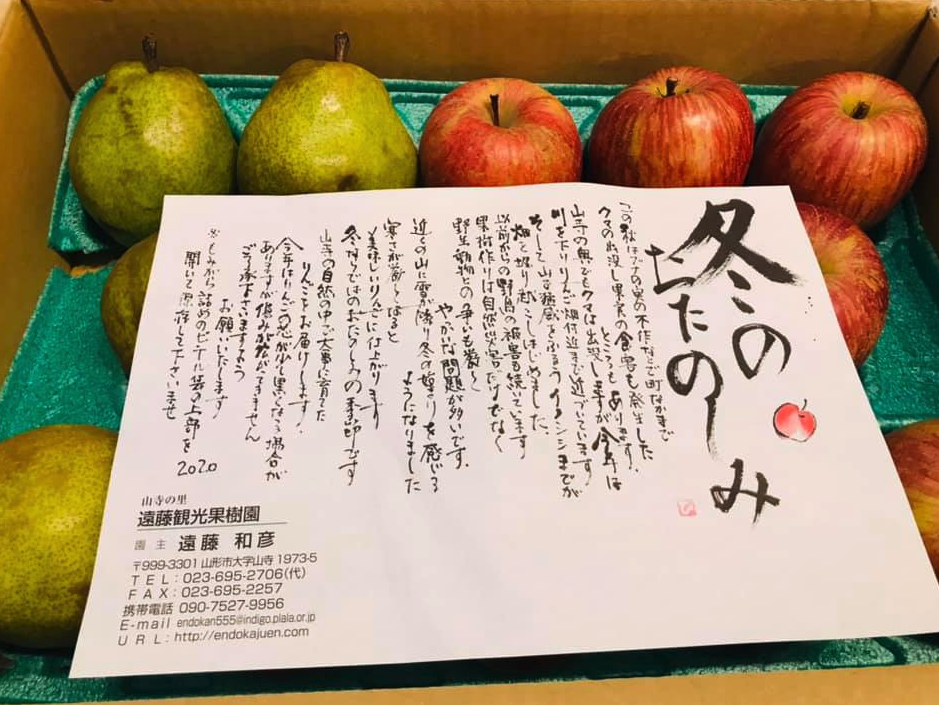 冬のおたのしみ
この秋はブナの実の不作などで町なかまで
クマの出没し果実の食害も発生した
ところもあります。
山寺の奥でもクマは出没しますが今年は
川を下りりんご畑付近まで近づいています
そして山で猛威をふるうイノシシまでが
畑を掘り起こしはじめました。
以前からの野鳥の被害も続いています
果樹作りは自然災害だけでなく
野生動物との争いも激しく
やっかいな問題が多いです。
近くの山に雪が降り冬の始まりを感じる
ようになりました
寒さが厳しくなると
美味しいりんごに仕上がります
冬ならではのおたのしみの季節です
山寺の自然の中で大事に育てた
りんごをお届けします。
今年はりんごの芯が少し黒くなる場合が
ありますが傷みが
ご了承下さいますよう
お願いいたします
※もみがら詰めのビニール袋の上部を
開いて保存して下さいませ
2020
山寺の里
遠藤観光果樹園
園主 遠藤 和彦
〒999-3301 山形市大字山寺1973-5
TEL:023-695-2706(代)
FAX:023-695-2257
携帯電話 090-7527-9956
E-mail endokan555@indigo.plala.or.jp
URL:http://endokajuen.com